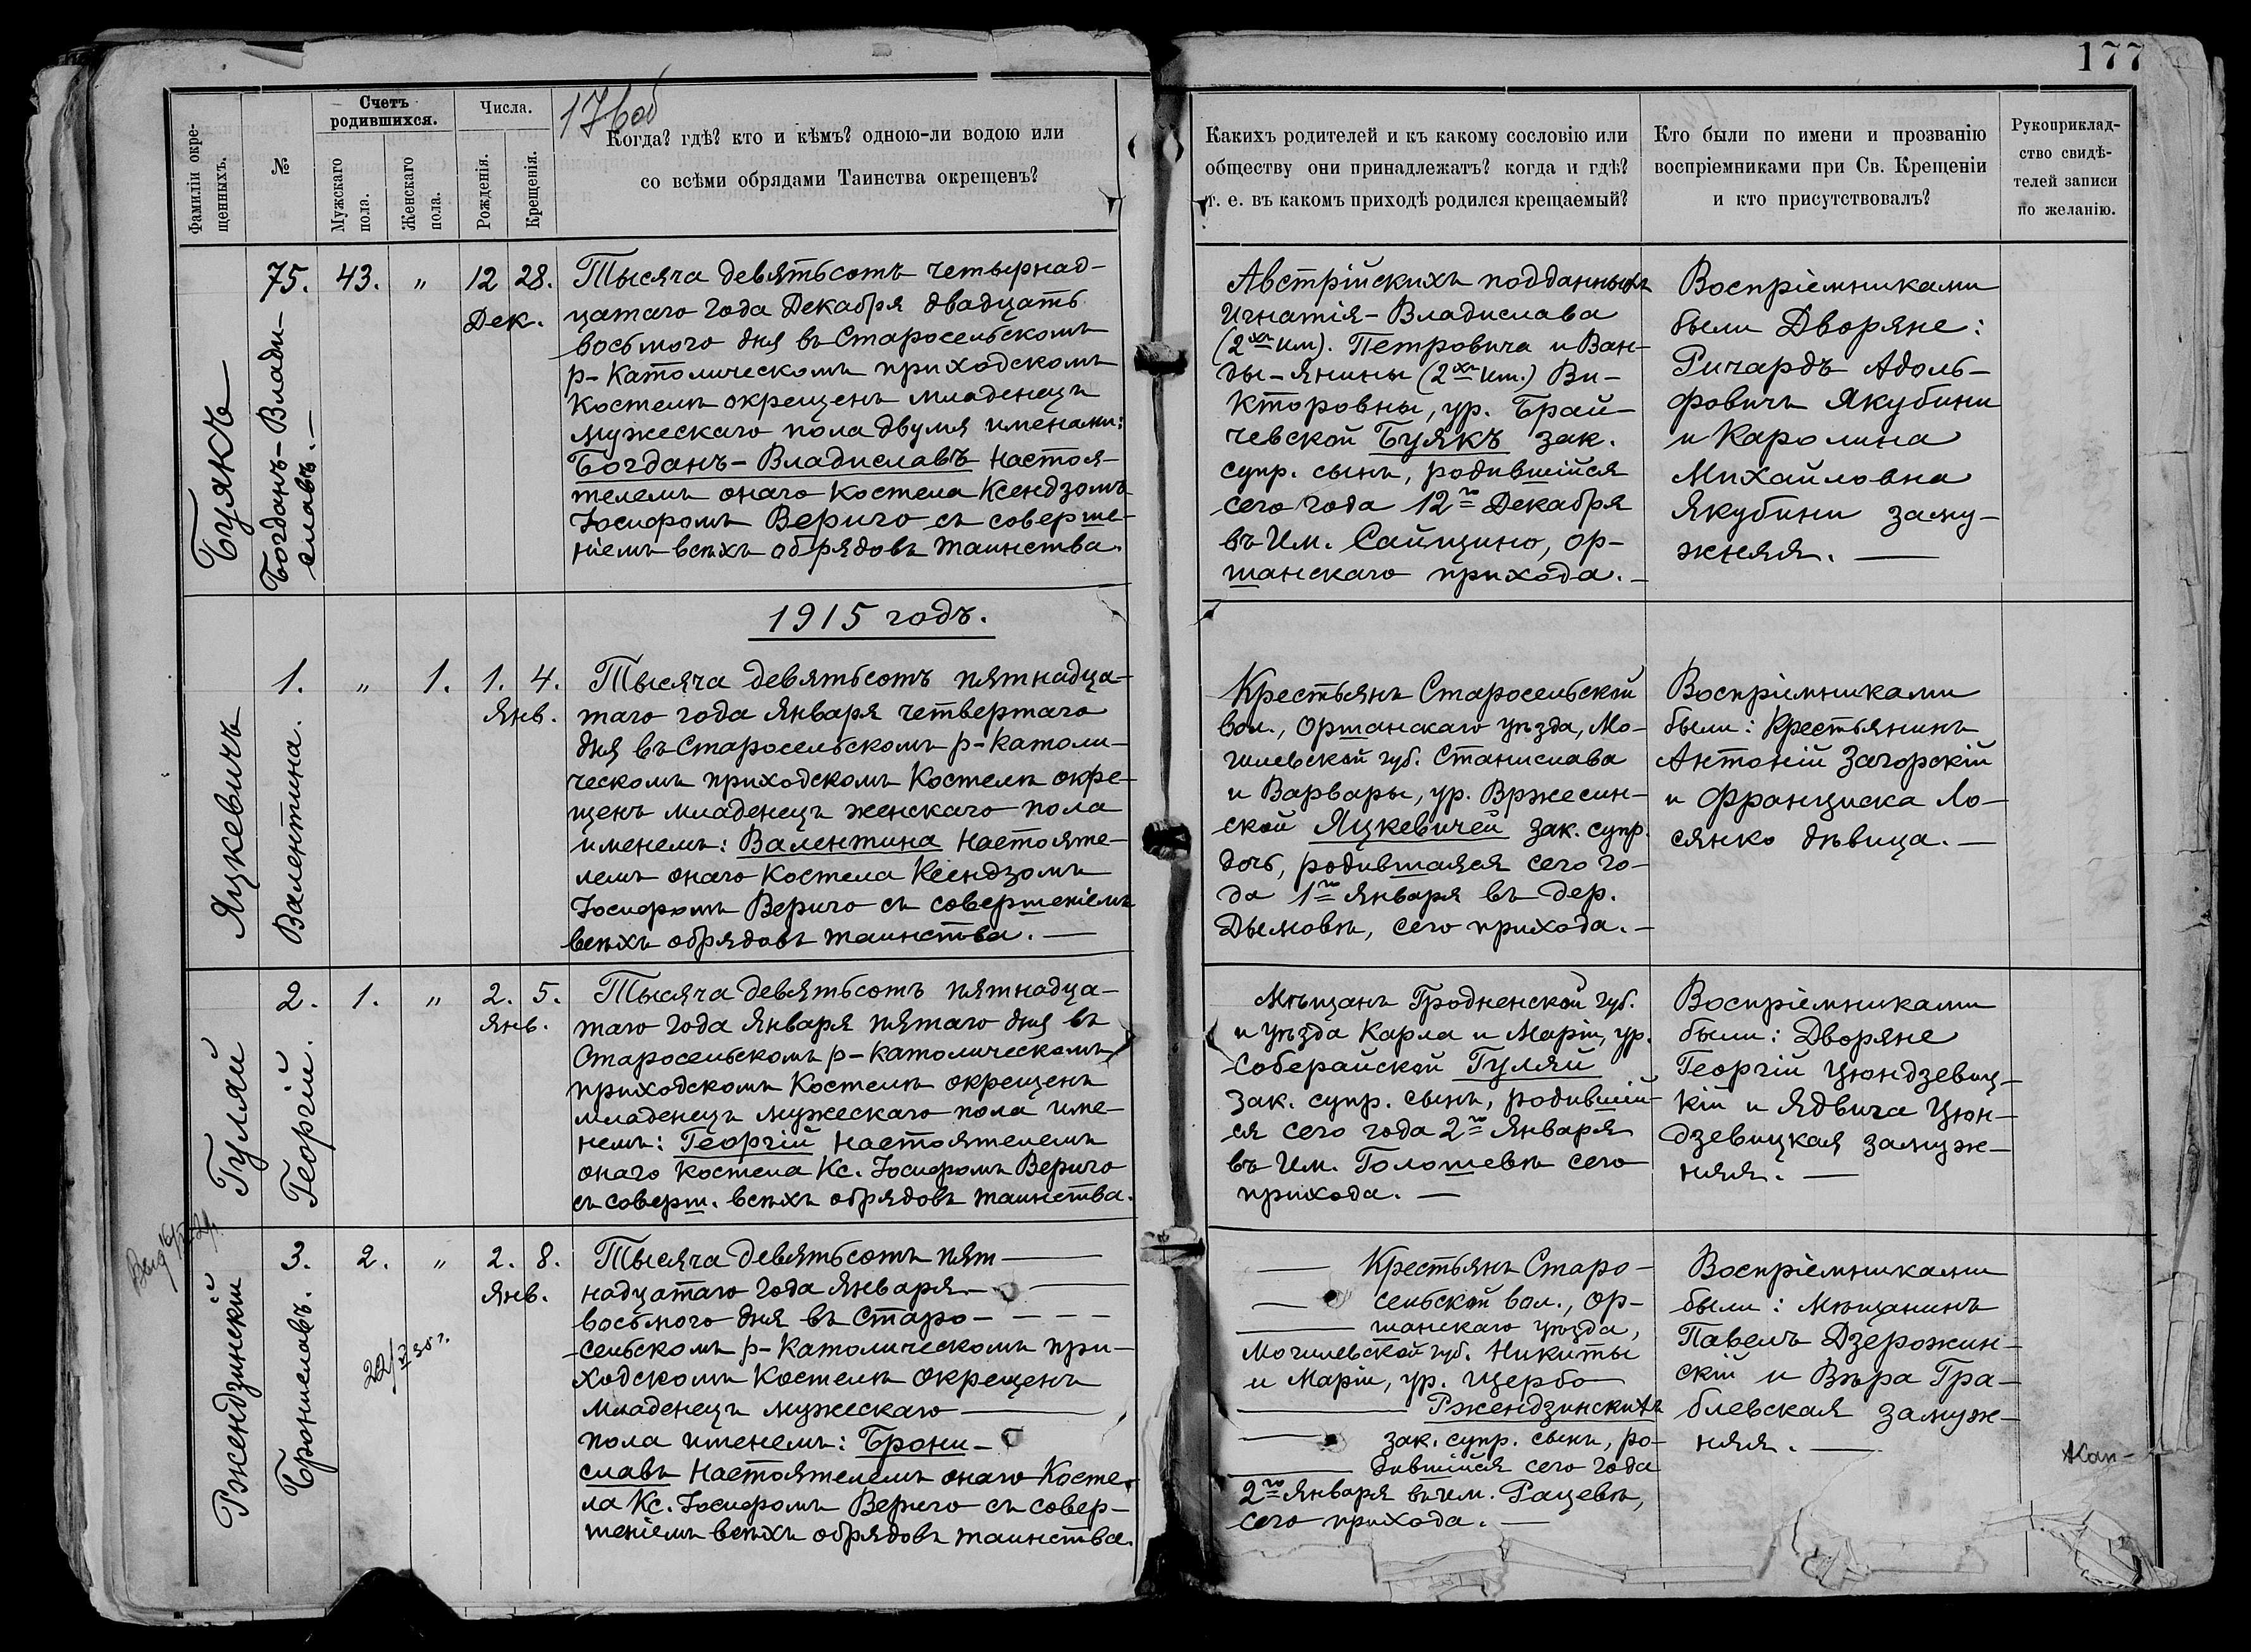 177
176об
Фамиліи окре-
щенныхъ.
№
Счетъ
родившихся.
Мужскаго
пола.
Женскаго
пола.
Числа.
Рожденія.
Крещенія.
Когда? гдѣ? кто и кѣмъ? одною-ли водою или
со всѣми обрядами Таинства окрещенъ?
Какихъ родителей и къ какому сословію или
обществу они принадлежатъ? когда и гдѣ?
т. е. въ какомъ приходѣ родился крещаемый?
Кто были по имени и прозванію
воспріемниками при Св. Крещеніи
и кто присутствовалъ?
Рукоприклад-
ство свидѣ-
телей записи
по желанію.
Буякъ
75.
Богданъ-Влади-
славъ.—
43.
„
12
28.
Дек.
Тысяча девятьсотъ четырнад-
цатаго года Декабря двадцать
восьмого дня въ Старосельскомъ
р-Католическомъ приходскомъ
Костелѣ окрещенъ младенецъ
мужескаго пола двумя именами:
Богданъ-Владиславъ Настоя-
телемъ онаго Костела Ксендзомъ
Іосифомъ Вериго съ соверше-
ніемъ всѣхъ обрядовъ таинства.
Австрійскихъ подданныхъ
Игнатія-Владислава
(2хъ им). Петровича и Ван-
ды-Янины (2хъ им.) Ви-
кторовны, ур. Брай-
чевской Буякъ зак.
супр. сынъ, родившійся
сего года 12го Декабря
въ Им. Сайщино, Ор-
шанскаго прихода.—
Воспріемниками
были Дворяне:
Ричардъ Адоль-
фовичъ Якубини
и Каролина
Михайловна
Якубини заму-
жняя.—
1915 годъ.
Яцкевичъ
1.
Валентина.
„
1.
1.
4.
Янв.
Тысяча девятьсотъ пятнадца-
таго года Января четвертаго
дня въ Старосельскомъ р-католи-
ческомъ приходскомъ Костелѣ окре-
щенъ младенецъ женскаго пола
именемъ: Валентина Настояте-
лемъ онаго Костела Ксендзомъ
Іосифомъ Вериго съ совершеніемъ
всѣхъ обрядовъ таинства.—
Крестьянъ Старосельской
вол., Оршанскаго уѣзда, Мо-
гилевской губ. Станислава
и Варвары, ур. Вржесин-
ской Яцкевичей зак. супр.
дочь, родившаяся сего го-
да 1го Января въ дер.
Дымовѣ, сего прихода.—
Воспріемниками
были: Крестьянинъ
Антоній Загорскій
и Франциска Ло-
сянко дѣвица.—
Гуляй
2.
Георгій.
1.
„
2.
5.
Янв.
Тысяча девятьсотъ пятнадца-
таго года Января пятаго дня въ
Старосельскомъ р-католическомъ
приходскомъ Костелѣ окрещенъ
младенецъ мужескаго пола име-
немъ: Георгій Настоятелемъ
онаго Костела Кс. Іосифомъ Вериго
съ соверш. всѣхъ обрядовъ таинства.
Мѣщанъ Гродненской губ.
и уѣзда Карла и Маріи, ур.
Соберайской Гуляй
зак. супр. сынъ, родившій-
ся сего года 2го Января
въ Им. Голошевѣ сего
прихода.—
Воспріемниками
были: Дворяне
Георгій Цюндзевиц-
кій и Ядвига Цюн-
дзевицкая замуж-
няя.—
Ржендзинскій
3.
Брониславъ.
2.
„
2.
8.
Янв.
Тысяча девятьсотъ пят—
надцатаго года Января—
восьмого дня въ Старо-
сельскомъ р-Католическомъ при-
ходскомъ Костелѣ окрещенъ
младенецъ мужескаго—
пола именемъ: Брони-
славъ Настоятелемъ онаго Косте-
ла Кс. Іосифомъ Вериго съ совер-
шеніемъ всѣхъ обрядовъ таинства.
— Крестьянъ Старо-
— сельской вол., Ор-
— шанскаго уѣзда,
Могилевской губ. Никиты
и Маріи, ур. Щербо
— Ржендзинскихъ
— зак. супр. сынъ, ро-
— дившійся сего года
2го Января въ им. Рацевѣ,
сего прихода.—
Воспріемниками
были: Мѣщанинъ
Павелъ Дзерожин-
скій и Вѣра Гра-
блевская замуж-
няя.—